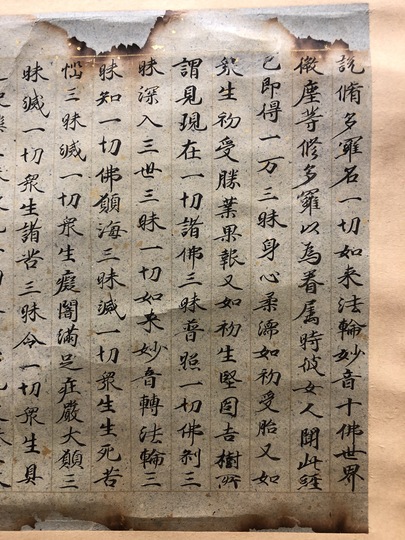 說脩多羅名一切如来法輪妙音十佛世界
微塵等脩多羅以為眷属時彼女人聞此經
已即得一万三昧身心柔濡如初受胎又如
衆生初受勝業果報又如初生堅固吉樹所
謂見現在一切諸佛三昧普照一切佛刹三
昧深入三世三昧一切如来妙音轉法輪三
昧知一切佛願海三昧滅一切衆生生死苦
惱三昧滅一切衆生癡闇滿足莊嚴大願三
昧滅一切衆生諸苦三昧令一切衆生具